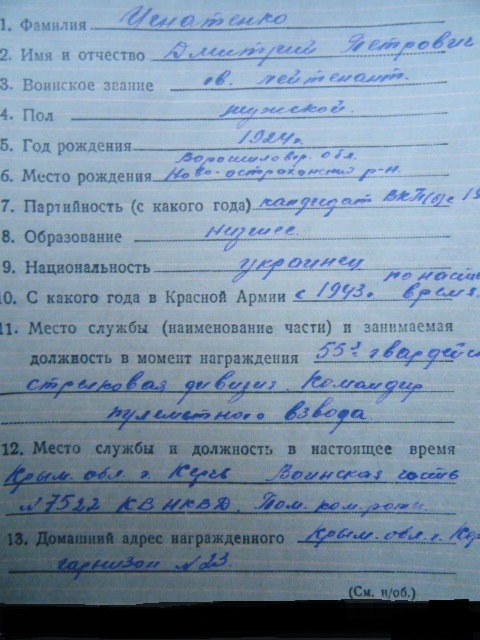 1. Фамилия Игнатенко
2. Имя и отчество Дмитрий Петрович
3. Воинское звание гв. лейтенант.
4. Пол мужской.
5. Год рождения 1924г.
Ворошиловгр. обл.
6. Место рождения Ново-астраханский р-н.
7. Партийность (с какого года) кандидат ВКП(б) с 19
8. Образование низшее.
9. Национальность украинец
по наст
10. С какого года в Красной Армии с 1943г. время.
11. Место службы (наименование части) и занимаемая
должность в момент награждения 55я гвардейс
стрелковая дивизия. Командир
пулеметного взвода
12. Место службы и должность в настоящее время
Крым. обл. г. Керчь Воинская часть
№7522 КВ НКВД. Пом. ком. роты.
13. Домашний адрес награжденного Крым. обл. г. Кер
гарнизон №23.
(См. н/об.)